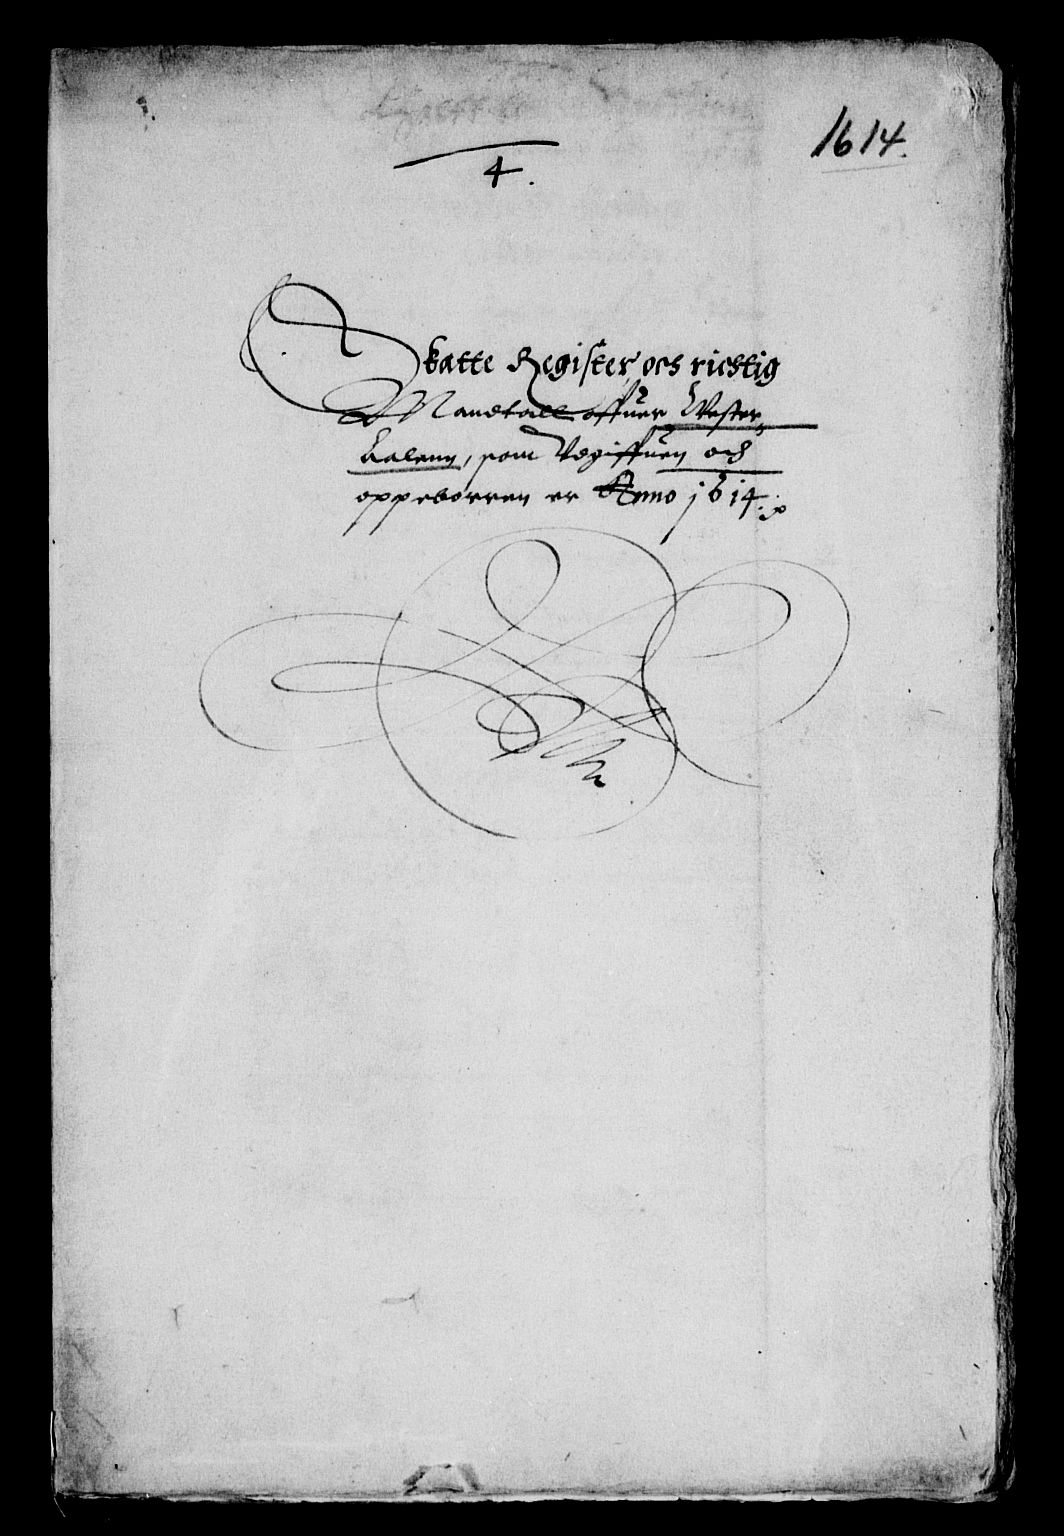 1614.
4.
Skatte Register och richtig
Mandtall offuer Wester
Aalenn, som Udgiffuen och
oppeborren er Anno 1614.